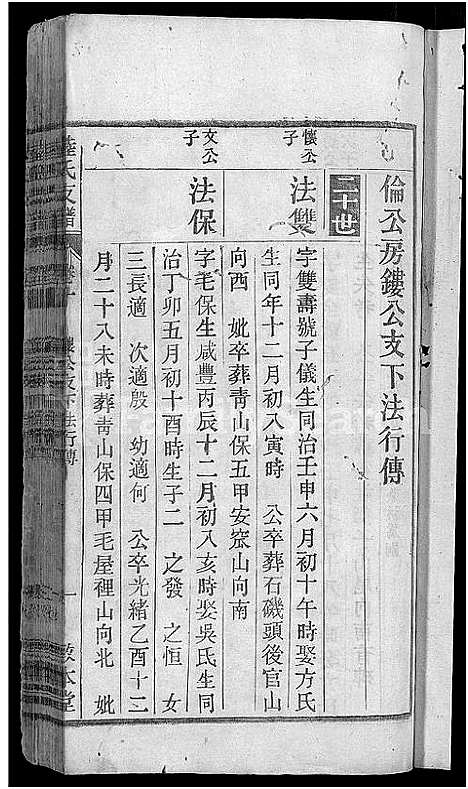 倫公房鏤公支下法行傳
二十世
懷公子
法雙
字雙壽號子儀生同治壬申六月初十午時娶方氏
生同年十二月初八寅時 公卒葬石磯頭後官山
向西 妣卒葬靑山保五甲安窯山向南
文公子
法保
字毛保生咸豐丙辰十二月初八亥時娶吳氏生同
治丁卯五月初十酉時生子二 之發 之恒 女
三長適 次適殷 幼適何 公卒光緒乙酉十二
月二十八未時葬靑山保四甲毛屋裡山向北 妣
氏支譜
鏤公支下法行傳
一
本堂